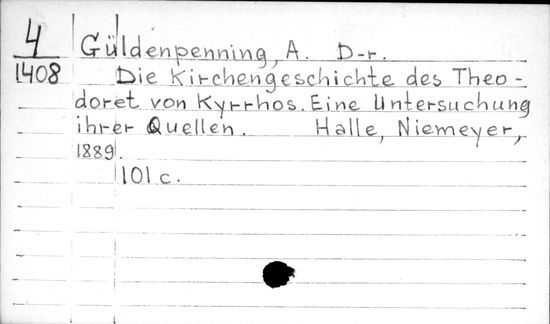 4 Güldenpenning, A. D-r.
1408 Die Kirchengeschichte des Theo-
doret von Kyrrhos. Eine Untersuchung
ihrer Quellen. Halle, Niemeyer,
1889.
101 c.